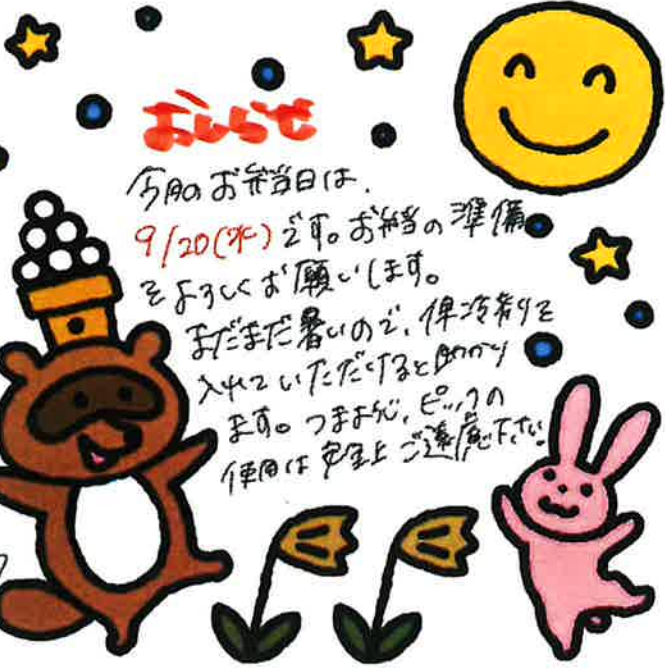 おしらせ
今月のお弁当日は、
9/20(水)です。お弁当の準備
をよろしくお願いします。
まだまだ暑いので、保冷剤を
入れていただけると助かり
ます。つまようじ、ピックの
使用は安全上ご遠慮下さい。